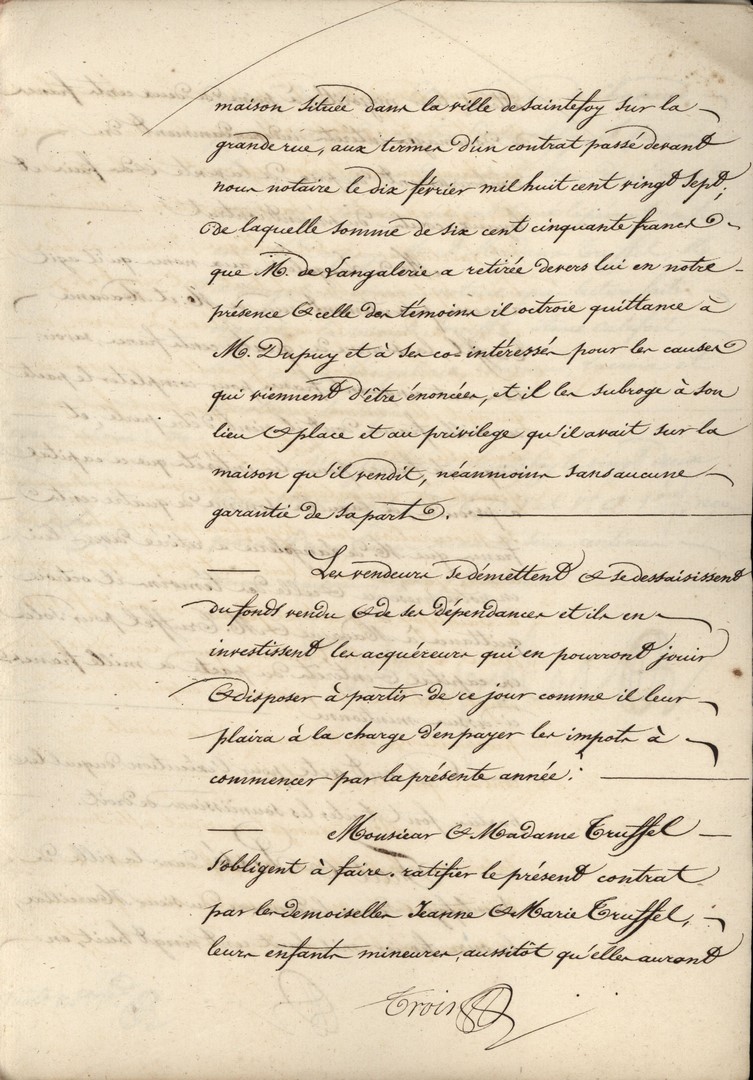 maison située dans la ville de saintefoy sur la
grande rue, aux termes d'un contrat passé devant
nous notaire le dix février mil huit cent vingt sept;
de laquelle somme de six cent cinquante francs
que M. de Langalerie a retirée devers lui en notre
présence & celle des témoins il octroie quittance à
M. Dupuy et à ses co-intéressés pour les causes
qui viennent d'être énoncées, et il les subroge à son
lieu & place et au privilege qu'il avait sur la
maison qu'il vendit, néanmoins sans aucune
garantie de sa part.
Les vendeurs se démettent & se dessaisissent
du fonds vendu & de ses dépendances et ils en
investissent les acquéreurs qui en pourront jouir
& disposer à partir de ce jour comme il leur
plaira à la charge d'en payer les impots à
commencer par la présente année.
Monsieur & Madame Truffel
s'obligent à faire ratifier le présent contrat
par les demoiselles Jeanne & Marie Truffel,
leurs enfants mineures, aussitôt qu'elles auront
Trois